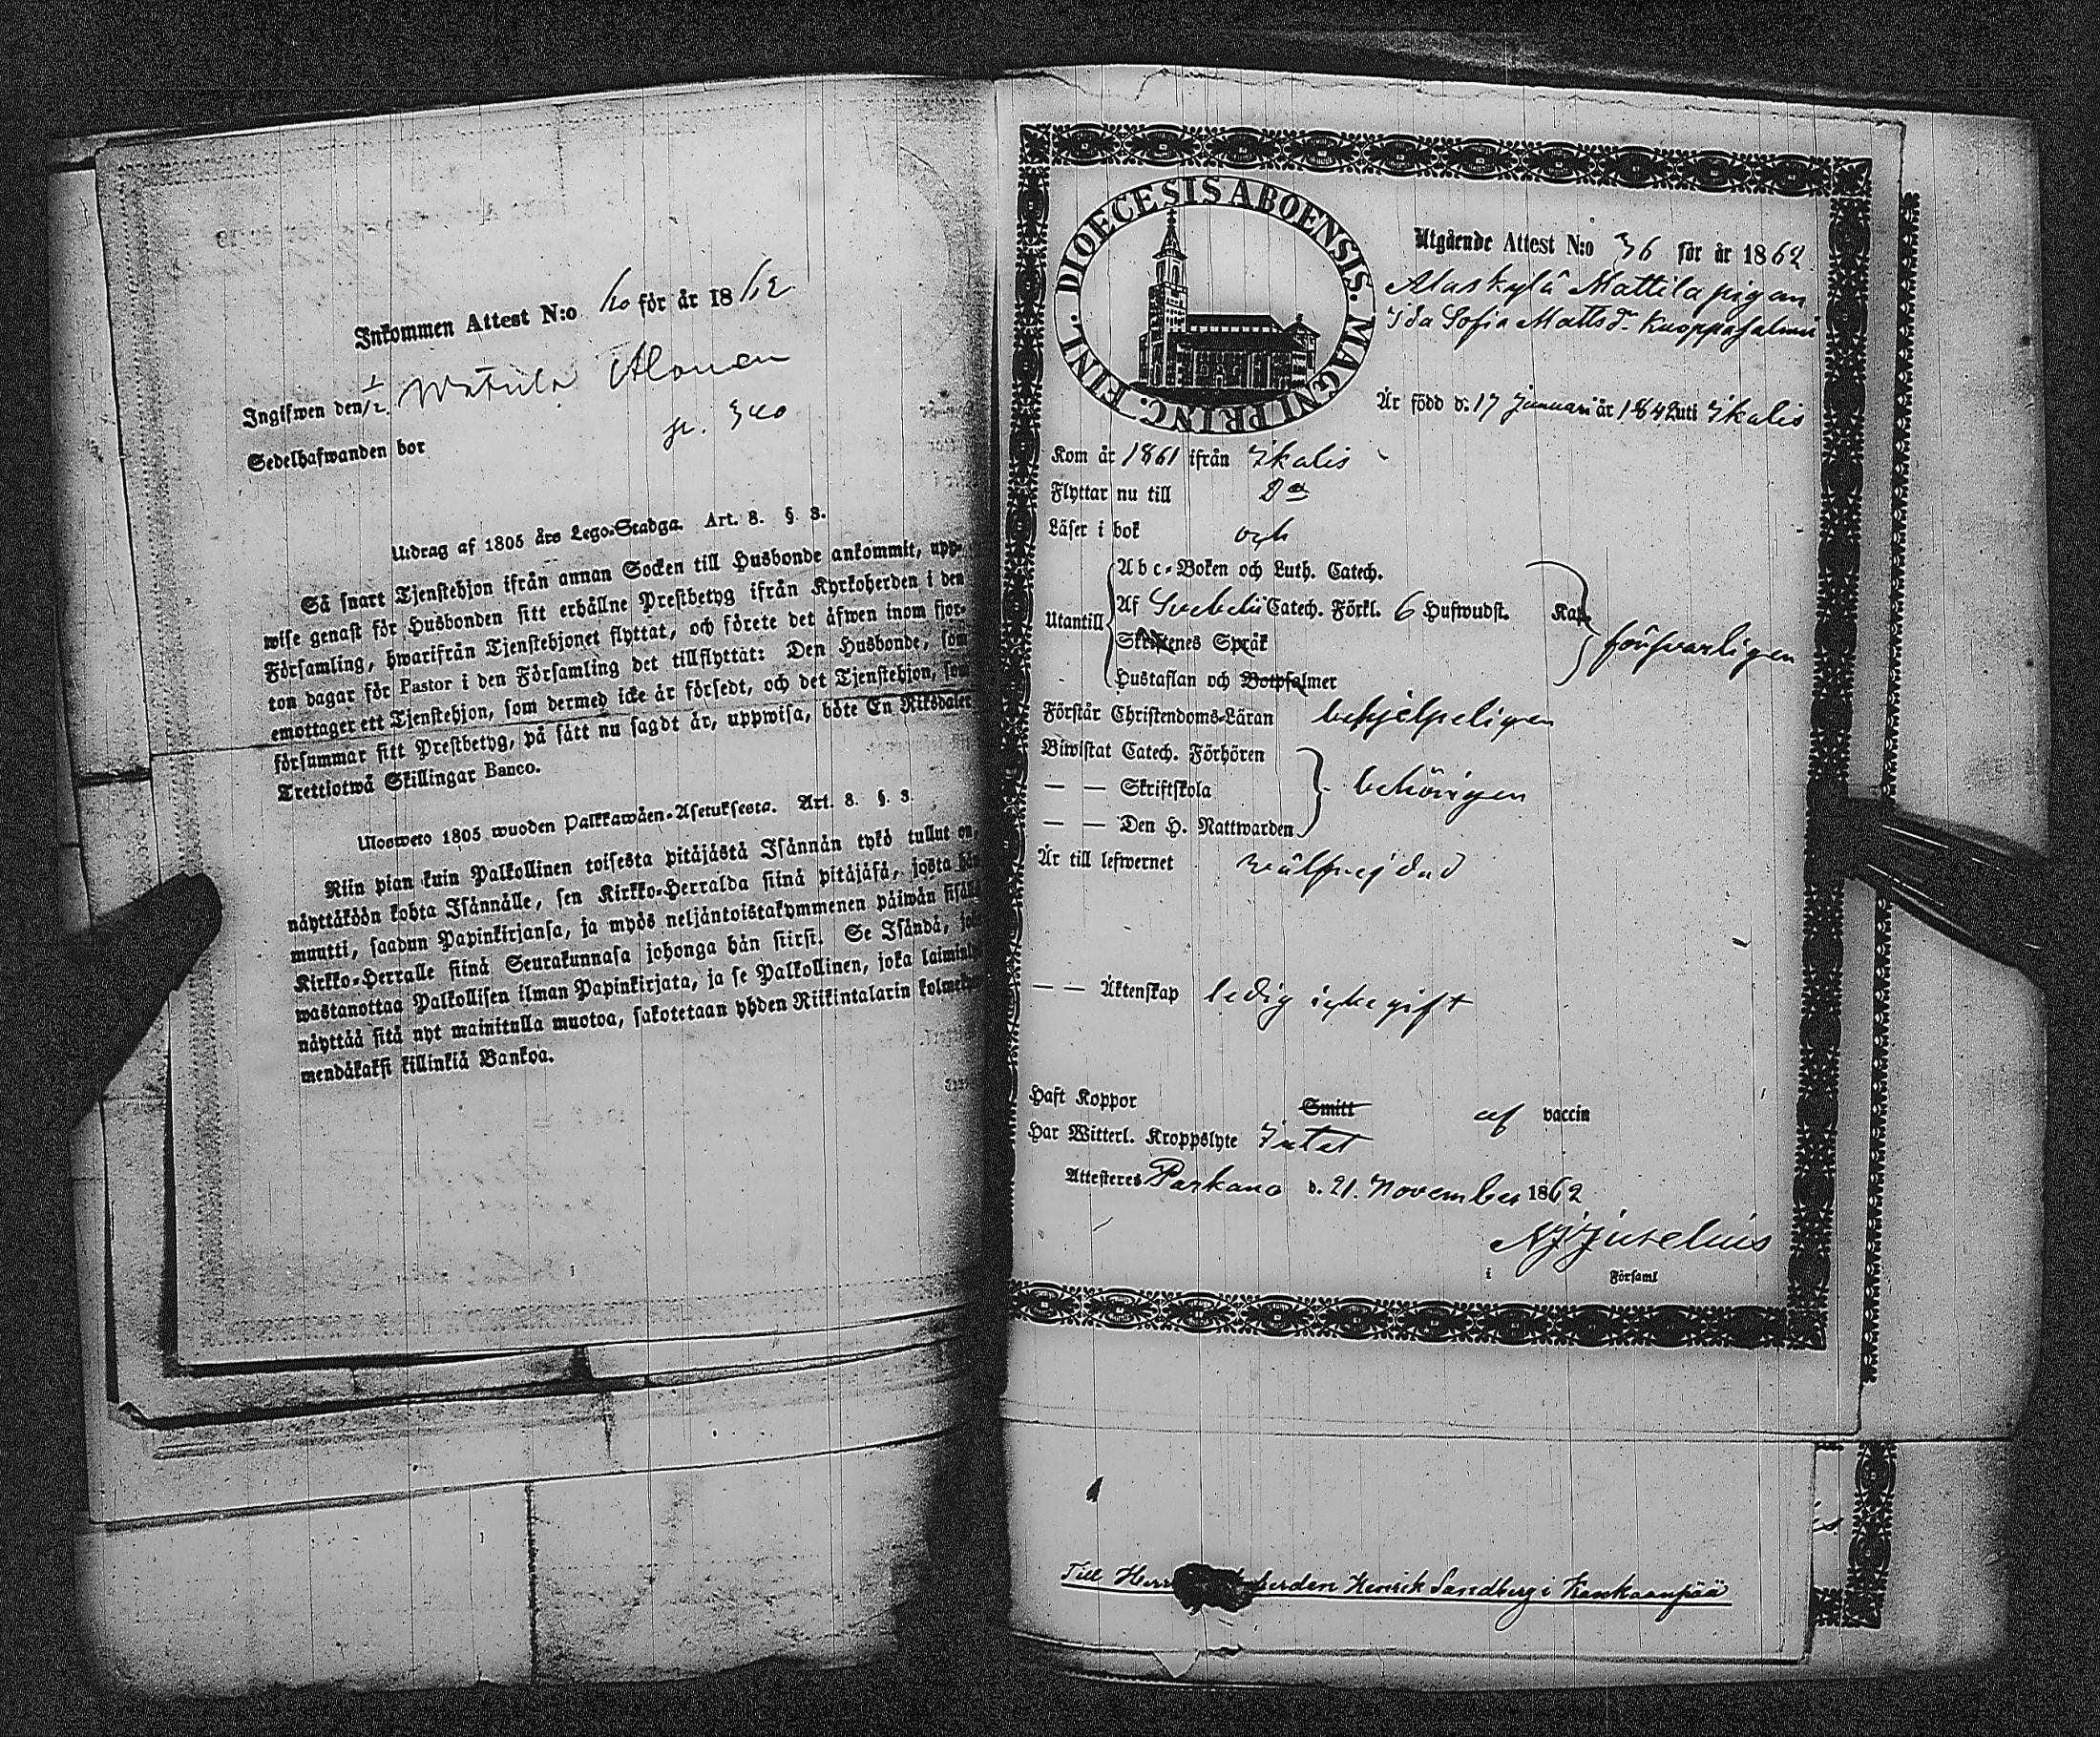 Inkommen Attest N:o 60 för år 1862
Ingifwen den 1/12. Alanen
Sedelhafwanden bor p. 340
Utdrag af 1805 års Lego-Stadga. Art. 8. §. 3.
Så snart Tjenstehjon ifrån annan Socken till Husbonde ankommit, upp-
wise genast för Husbonden sitt erhållne Prestbetyg ifrån Kyrkoherden i den
Församling, hwarifrån Tjenstehjonet flyttat, och förete det äfwen inom fjor-
ton dagar för Pastor i den Församling det tillflyttat: Den Husbonde, som
emottager ett Tjenstehjon, som dermed icke är försedt, och det Tjenstehjon, som
försummar sitt Prestbetyg, på sätt nu sagdt är, uppwisa, böte En Riksdaler
Trettiotwå Skillingar Banco.
Uloswеto 1805 wuoden Palkkawäen-Asetuksesta. Art. 8. §. 3.
Niin pian kuin Palkollinen toisesta pitäjästä Isännän tykö tullut on,
näyttäköön kohta Isännälle, sen Kirkko-Herralda siinä pitäjäsä, josta hän
muutti, saadun Papinkirjansa, ja myös neljäntoistakymmenen päiwän sisällä
Kirkko-Herralle siinä Seurakunnasa johonga hän siirsi. Se Isändä, joka
wastanottaa Palkollisen ilman Papinkirjata, ja se Palkollinen, joka laiminlyö
näyttää sitä nyt mainitulla muotoa, sakotetaan yhden Riikintalarin kolmekym-
mendäkaksi killinkiä Bankoa.
DIOECESIS ABOENSIS. MAGNI PRINC. FINL.
Utgående Attest N:o 36 för år 1862.
Alaskylä Mattila pigan
Ida Sofia Mattsd:r Kuoppasalmi
Är född d: 17 Januari år 1842 uti Ikalis
Kom år 1861 ifrån Ikalis
Flyttar nu till Do
Läser i bok och
Utantill
Abc-Boken och Luth. Catech.
Af Svebelii Catech. Förkl. 6 Hufwudst.
Skriftenes Språk
Hustaflan och Botpsalmer
försvarligen
Förstår Christendoms-Läran behjelpeligen
Biwistat Catech. Förhören
— — Skriftskola behörigen
— — Den H. Nattwarden
Är till lefwernet välfrejdad
— — Äktenskap ledig icke gift
Haft Koppor Smitt af vaccin
Har Witterl. Kroppslyte Intet
Attesteres Parkano d. 21. November 1862
Juselius
i Församl
Till Herr Henrik Sandberg i Kankaanpää